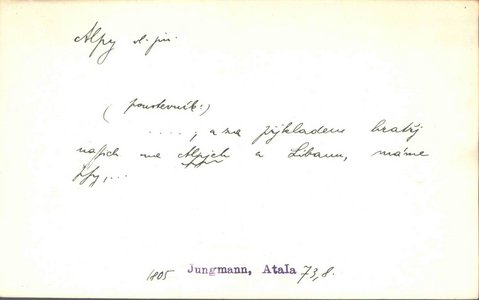 Alpy vl. jm.
(poustevník:)
...., a za přjkladem bratřj
nassich na Alpjch a Libanu, máme
psy,...
1805 Jungmann, Atala 73,8.